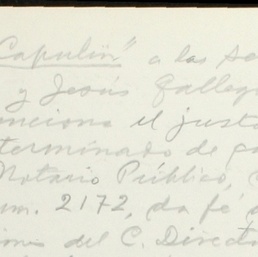 Capulin" a las
y Jesús Galleg
enciona el justo
terminado de
Notario Público,
um. 2172, da fé
del C. Direct